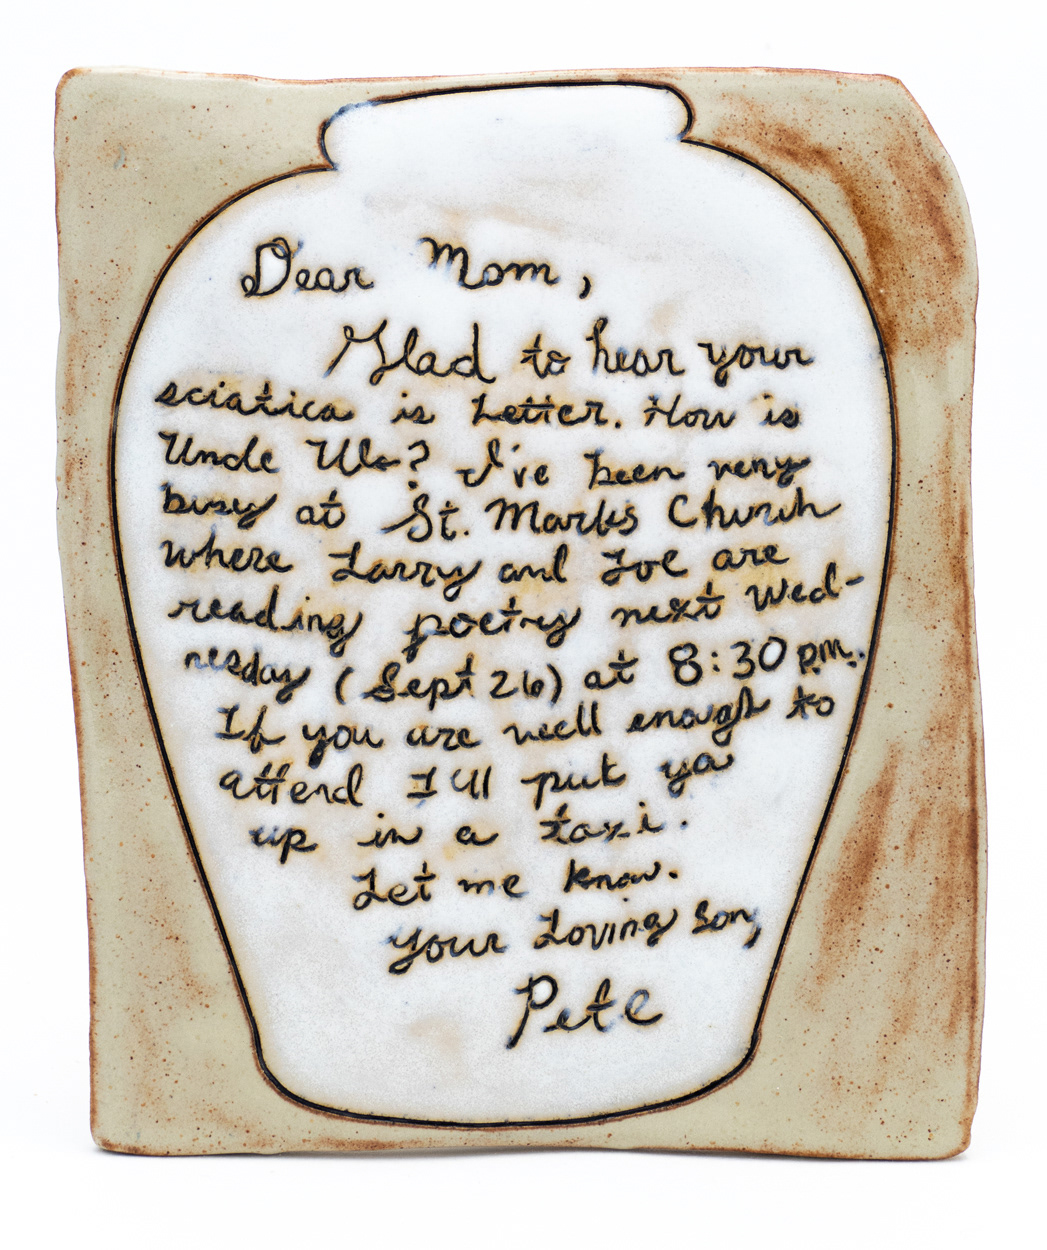 Dear Mom,
Glad to hear your
sciatica is better. How is
Uncle ? I've been very
busy at St. Marks Church
where Larry and Joe are
reading poetry next Wed-
nesday (Sept 26) at 8:30 p.m.
If you are well enough to
attend I'll put ya
up in a taxi.
Let me know.
Your Loving Son,
Pete